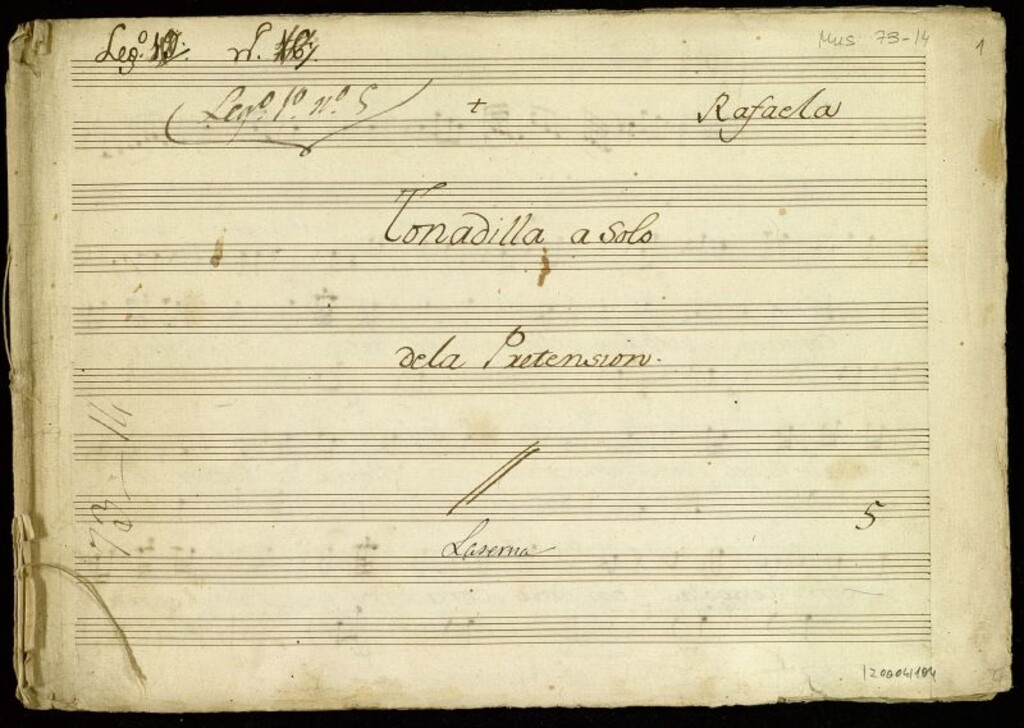 Leg.º
Mus 73-14
1
(Leg.º 1.º n.º 5
+
Rafaela
Tonadilla a Solo
dela Pretension.
73-14
5
Laserna
1200041104